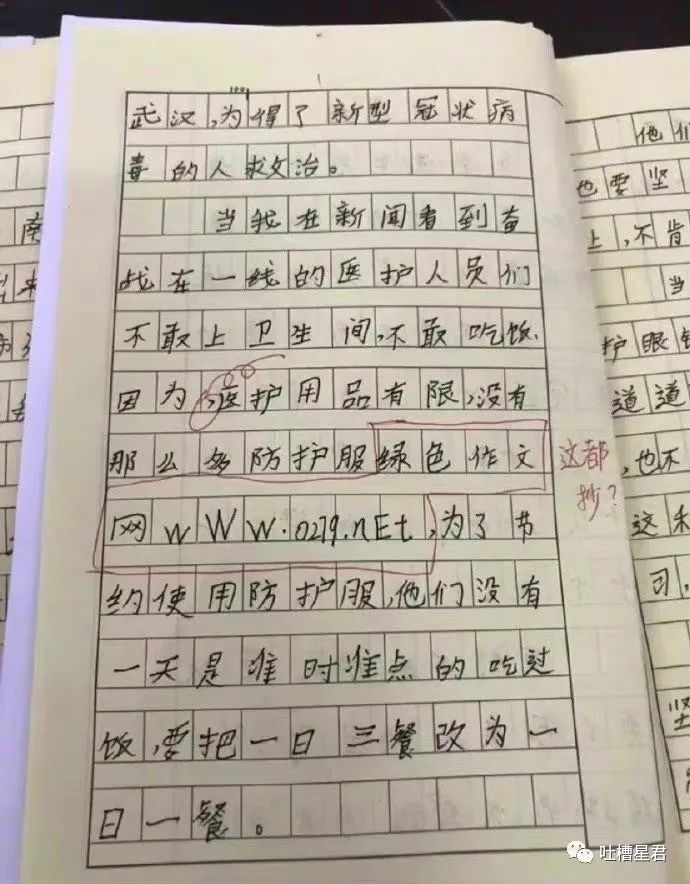 武汉,为得了新型冠状病
毒的人救治。
当我在新闻看到奋
战在一线的医护人员们
不敢上卫生间,不敢吃饭.
因为,医护用品有限,没有
那么多防护服绿色作文
网wWw.0279.nEt,为了节
约使用防护服,他们没有
一天是准时准点的吃过
饭,要把一日三餐改为一
日一餐。
这都
抄?
南
他们
也要坚
上,不肯
当
护眼
道道
,也不
这
习,
坚
吐槽星君